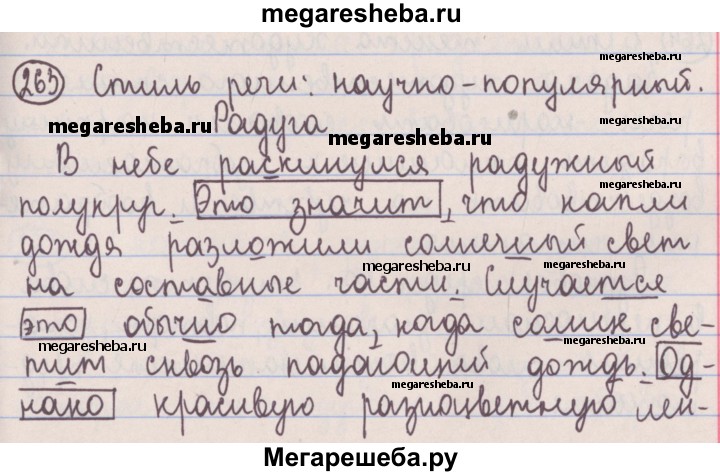 megaresheba.ru
263 Стиль речи: научно-популярный.
megaresheba.ru Радуга megaresheba.ru
megaresheba.ru
В небе раскинулся радужный
megaresheba.ru
полукруг. Это значит, что капли
дождя разложили солнечный свет
megaresheba.ru
megaresheba.ru
на составные части. Случается
megaresheba.ru
это обычно тогда, когда солнце све-
megaresheba.ru
тит сквозь падающий дождь. Од-
megaresheba.ru
нако красивую разноцветную лен-
Мегарешеба.ру